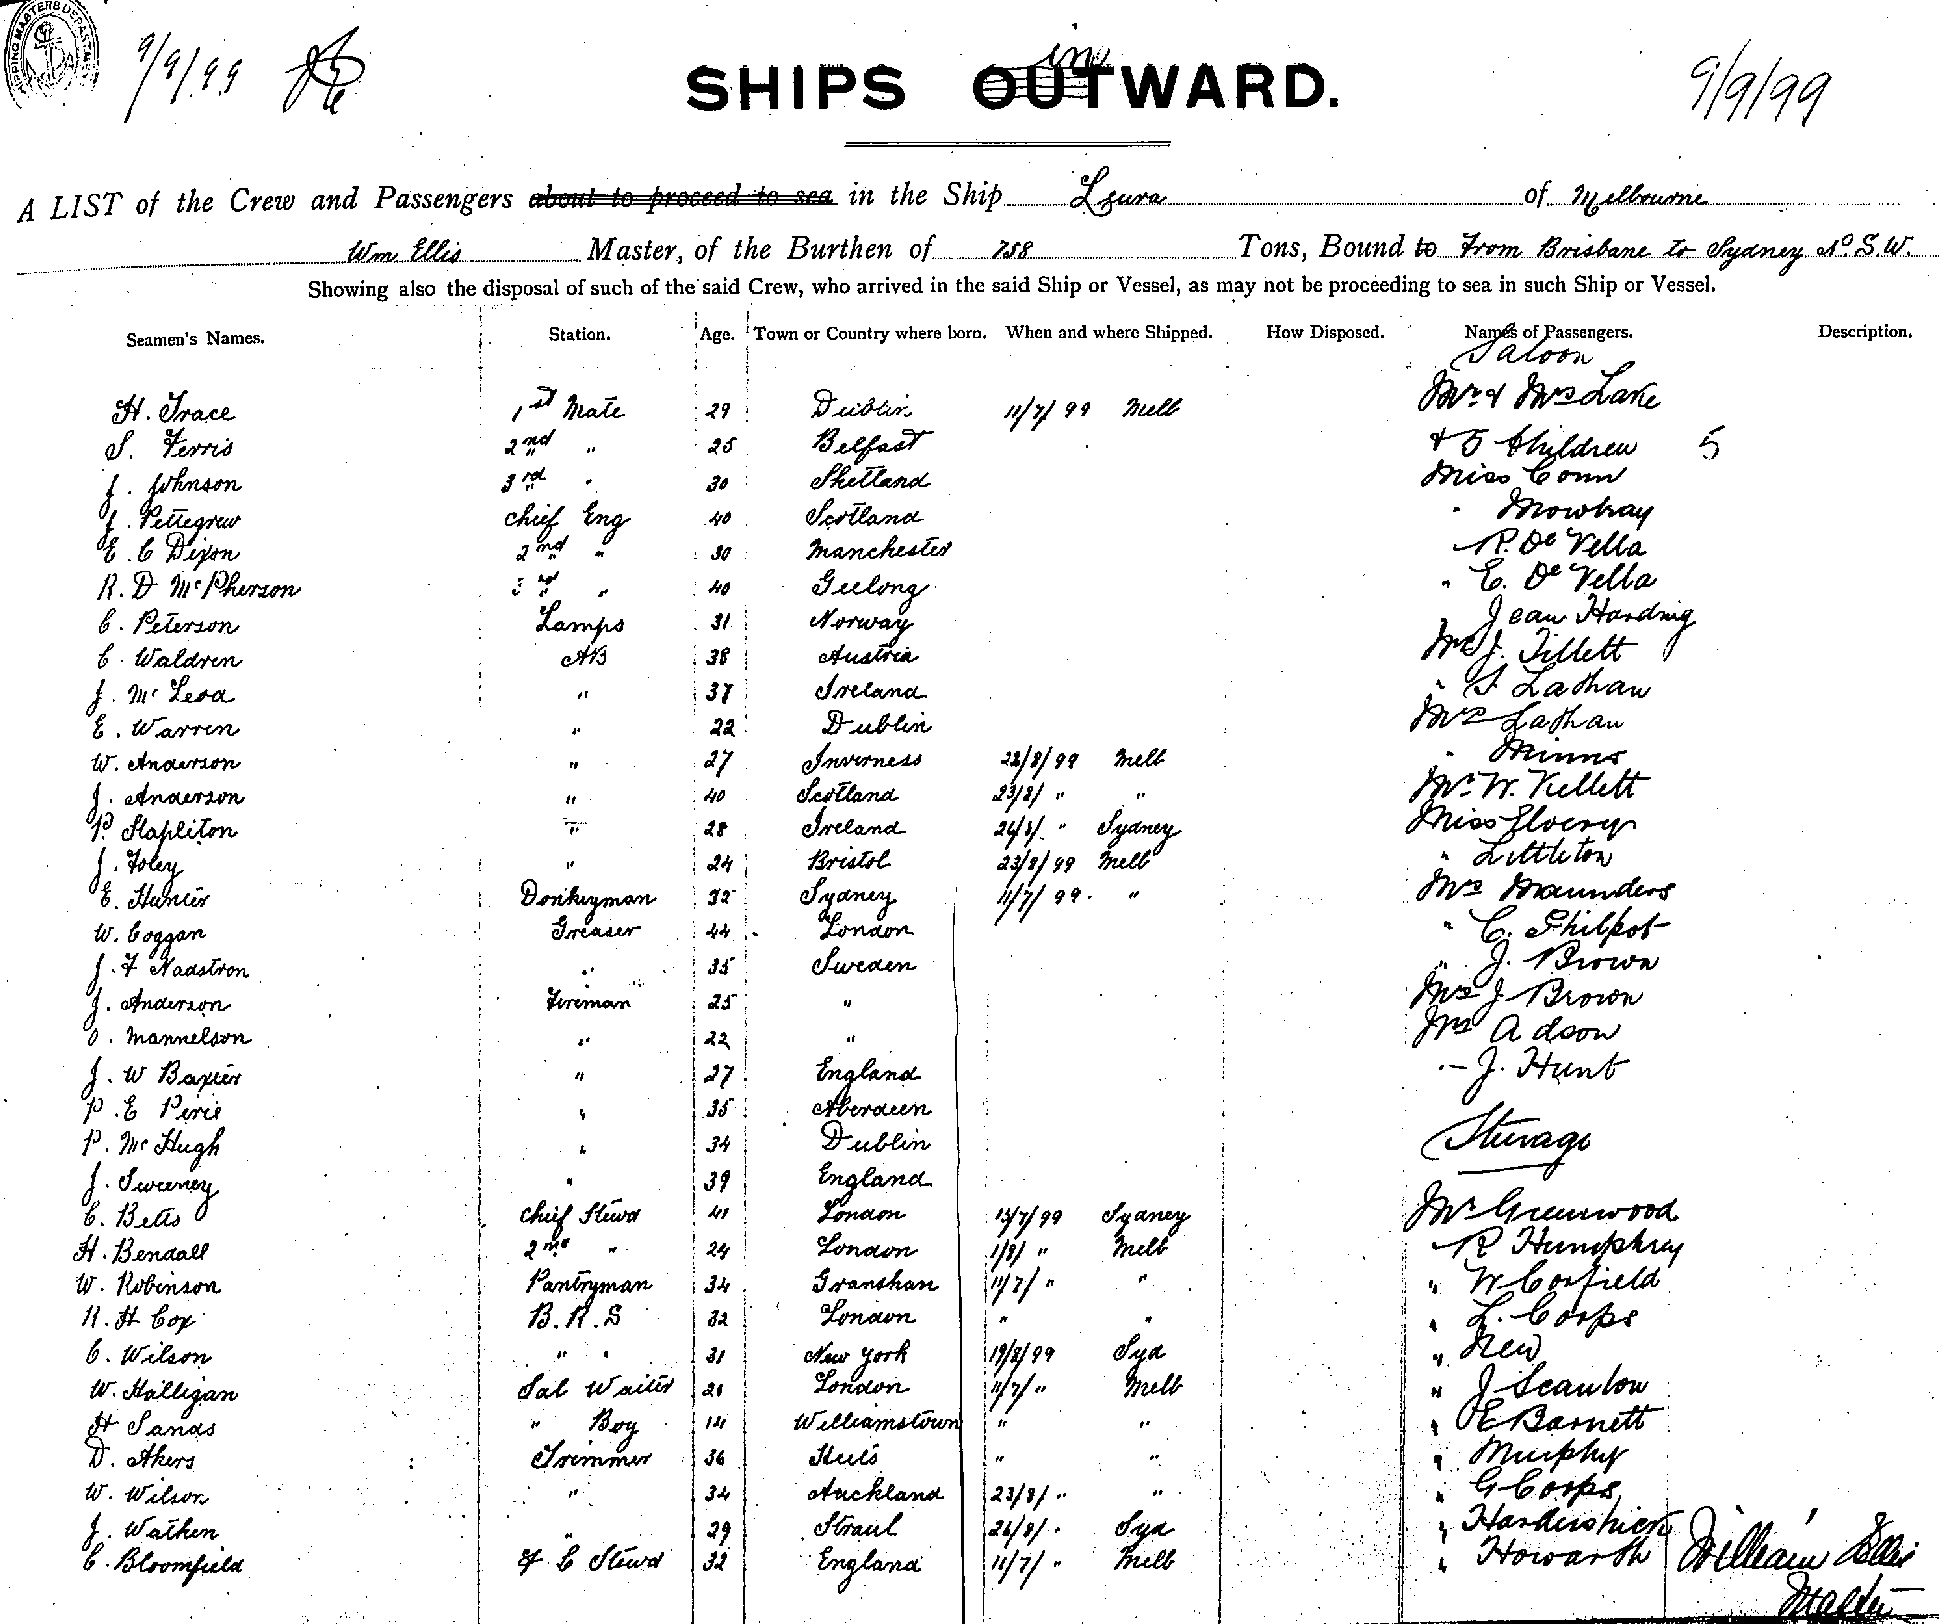 9/9/99
SHIPS OUTWARD. in
9/9/99
A LIST of the Crew and Passengers about to proceed to sea in the Ship Leura of Melbourne
Wm Ellis Master, of the Burthen of 758 Tons, Bound to From Brisbane to Sydney N.S.W.
Showing also the disposal of such of the said Crew, who arrived in the said Ship or Vessel, as may not be proceeding to sea in such Ship or Vessel.
Seamen's Names. Station. Age. Town or Country where born. When and where Shipped. How Disposed. Names of Passengers. Description.
Saloon
H. Trace 1st Mate 29 Dublin 11/7/99 Melb Mr & Mrs Lake
S. Ferris 2nd " 25 Belfast & 5 Children 5
J. Johnson 3rd " 30 Shetland Miss Conn
J. Pettegrew Chief Eng 40 Scotland " Mowbray
E. C Dixon 2nd " 30 Manchester R. De Vella
R. D McPherson 3rd " 40 Geelong " E. De Vella
C. Peterson Lamps 31 Norway " Jean Harding
C. Waldren AB 38 Austria Mr J. Tillett
J. McLeod " 37 Ireland " Lathan
E. Warren " 22 Dublin Mrs Lathan
W. Anderson " 27 Inverness 22/8/99 Melb " Minns
J. Anderson " 40 Scotland 23/8/ " " Mr W. Kellett
P. Stapleton " 28 Ireland 26/8/ " Sydney Miss
J. Foley " 24 Bristol 23/8/99 Melb " Littleton
E. Hunter Donkeyman 32 Sydney 11/7/99 " Mrs Maunders
W. Coggan Greaser 44 London " C. Philpot
J. F Nadstron " 35 Sweden " J. Brown
J. Anderson Fireman 25 " Mrs J Brown
O. Mannelson " 22 " Mrs Adson
J. W Baxter " 27 England " J. Hunt
P. E Perie " 35 Aberdeen
P. McHugh " 34 Dublin Steerage
J. Sweeney " 39 England
C. Betts Chief Stewd 41 London 15/7/99 Sydney Mr Greenwood
H. Bendall 2nd " 24 London 1/8/ " Melb R Humphrey
W. Robinson Pantryman 34 Granshan 11/7/ " " " W Corfield
R. H Cox B.R.S 32 London " " " L. Corps
C. Wilson " " 31 New York 19/8/99 Syd " New
W. Halligan Sal Waiter 21 London 11/7/ " Melb " J Scanlon
H Sands " Boy 14 Williamstown " " " E Barnett
D. Akers Trimmer 36 " " " Murphy
W. Wilson " 34 Auckland 23/8/ " " " G Corps
J. Wathen " 29 26/8/ " Syd "
C. Bloomfield F C Stewd 32 England 11/7/ " Melb " Howarth William Ellis
Master